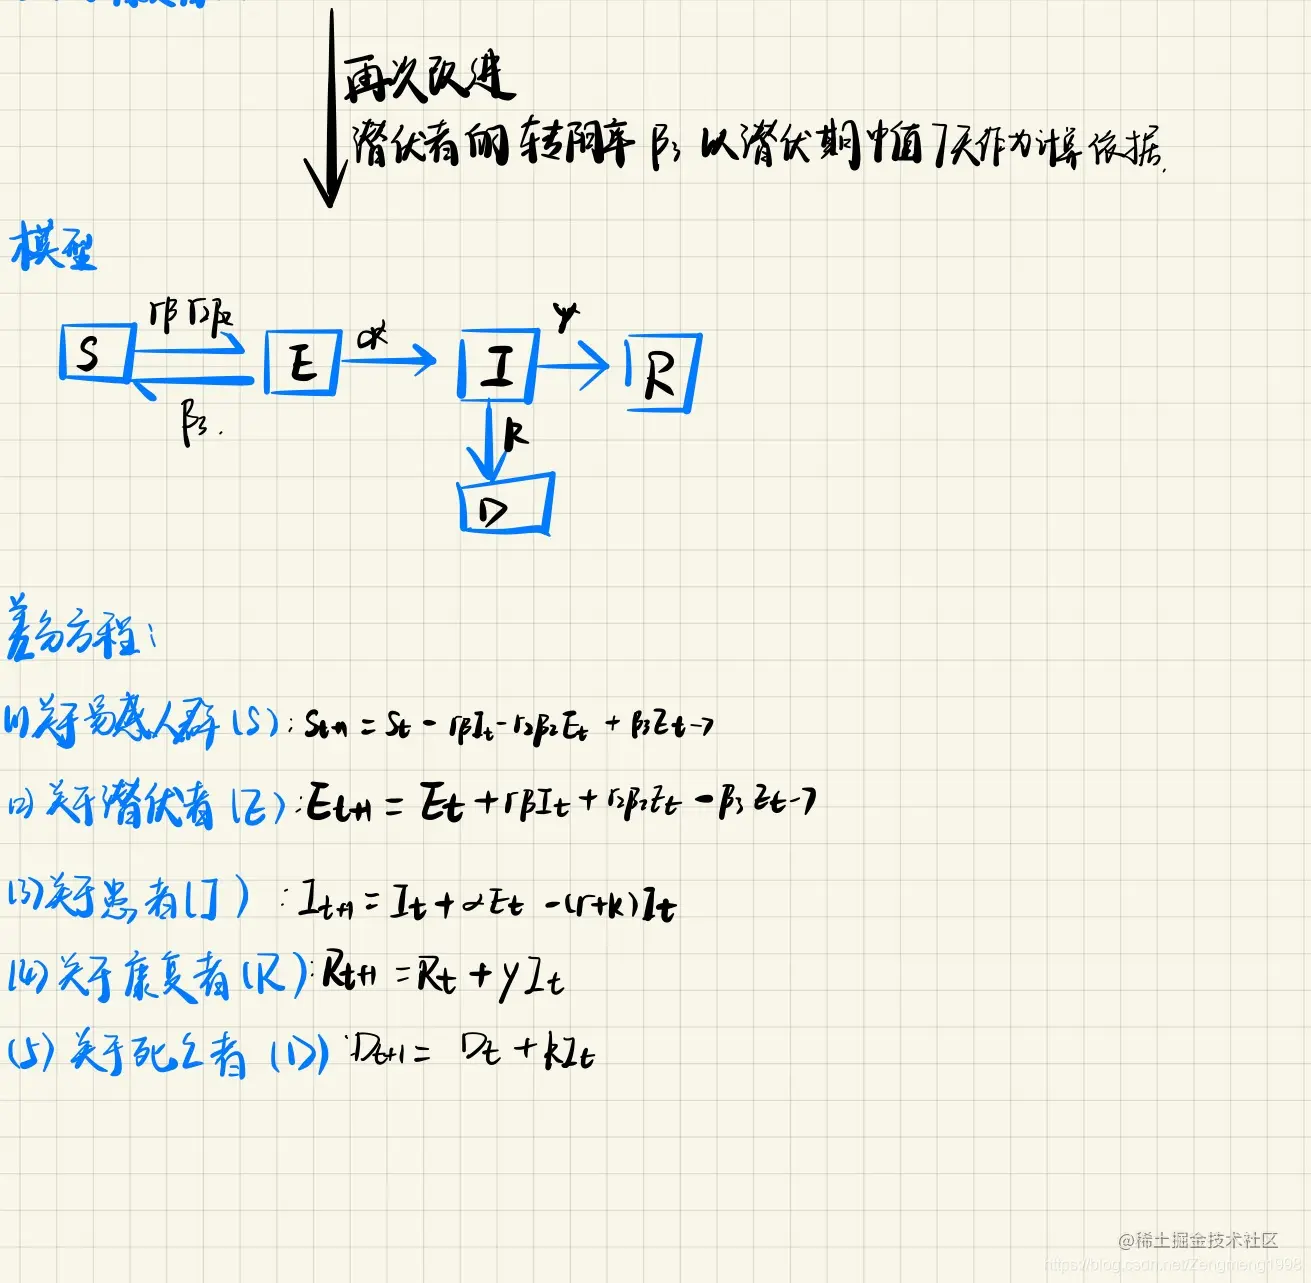 再次改进
潜伏者的转阴率 β₃ 以潜伏期中值7天作为计算依据.
模型
rβ r₂β₂
S E α I γ R
β₃.
k
D
差分方程:
(1)关于易感人群(S): Sₜ₊₁ = Sₜ - rβIₜ - r₂β₂Eₜ + β₃Eₜ₋₇
(2)关于潜伏者(E): Eₜ₊₁ = Eₜ + rβIₜ + r₂β₂Eₜ - β₃Eₜ₋₇
(3)关于患者(I): Iₜ₊₁ = Iₜ + αEₜ - (r+k)Iₜ
(4)关于康复者(R): Rₜ₊₁ = Rₜ + γIₜ
(5)关于死亡者(D): Dₜ₊₁ = Dₜ + kIₜ
@稀土掘金技术社区
https://blog.csdn.net/Zengmeng1998